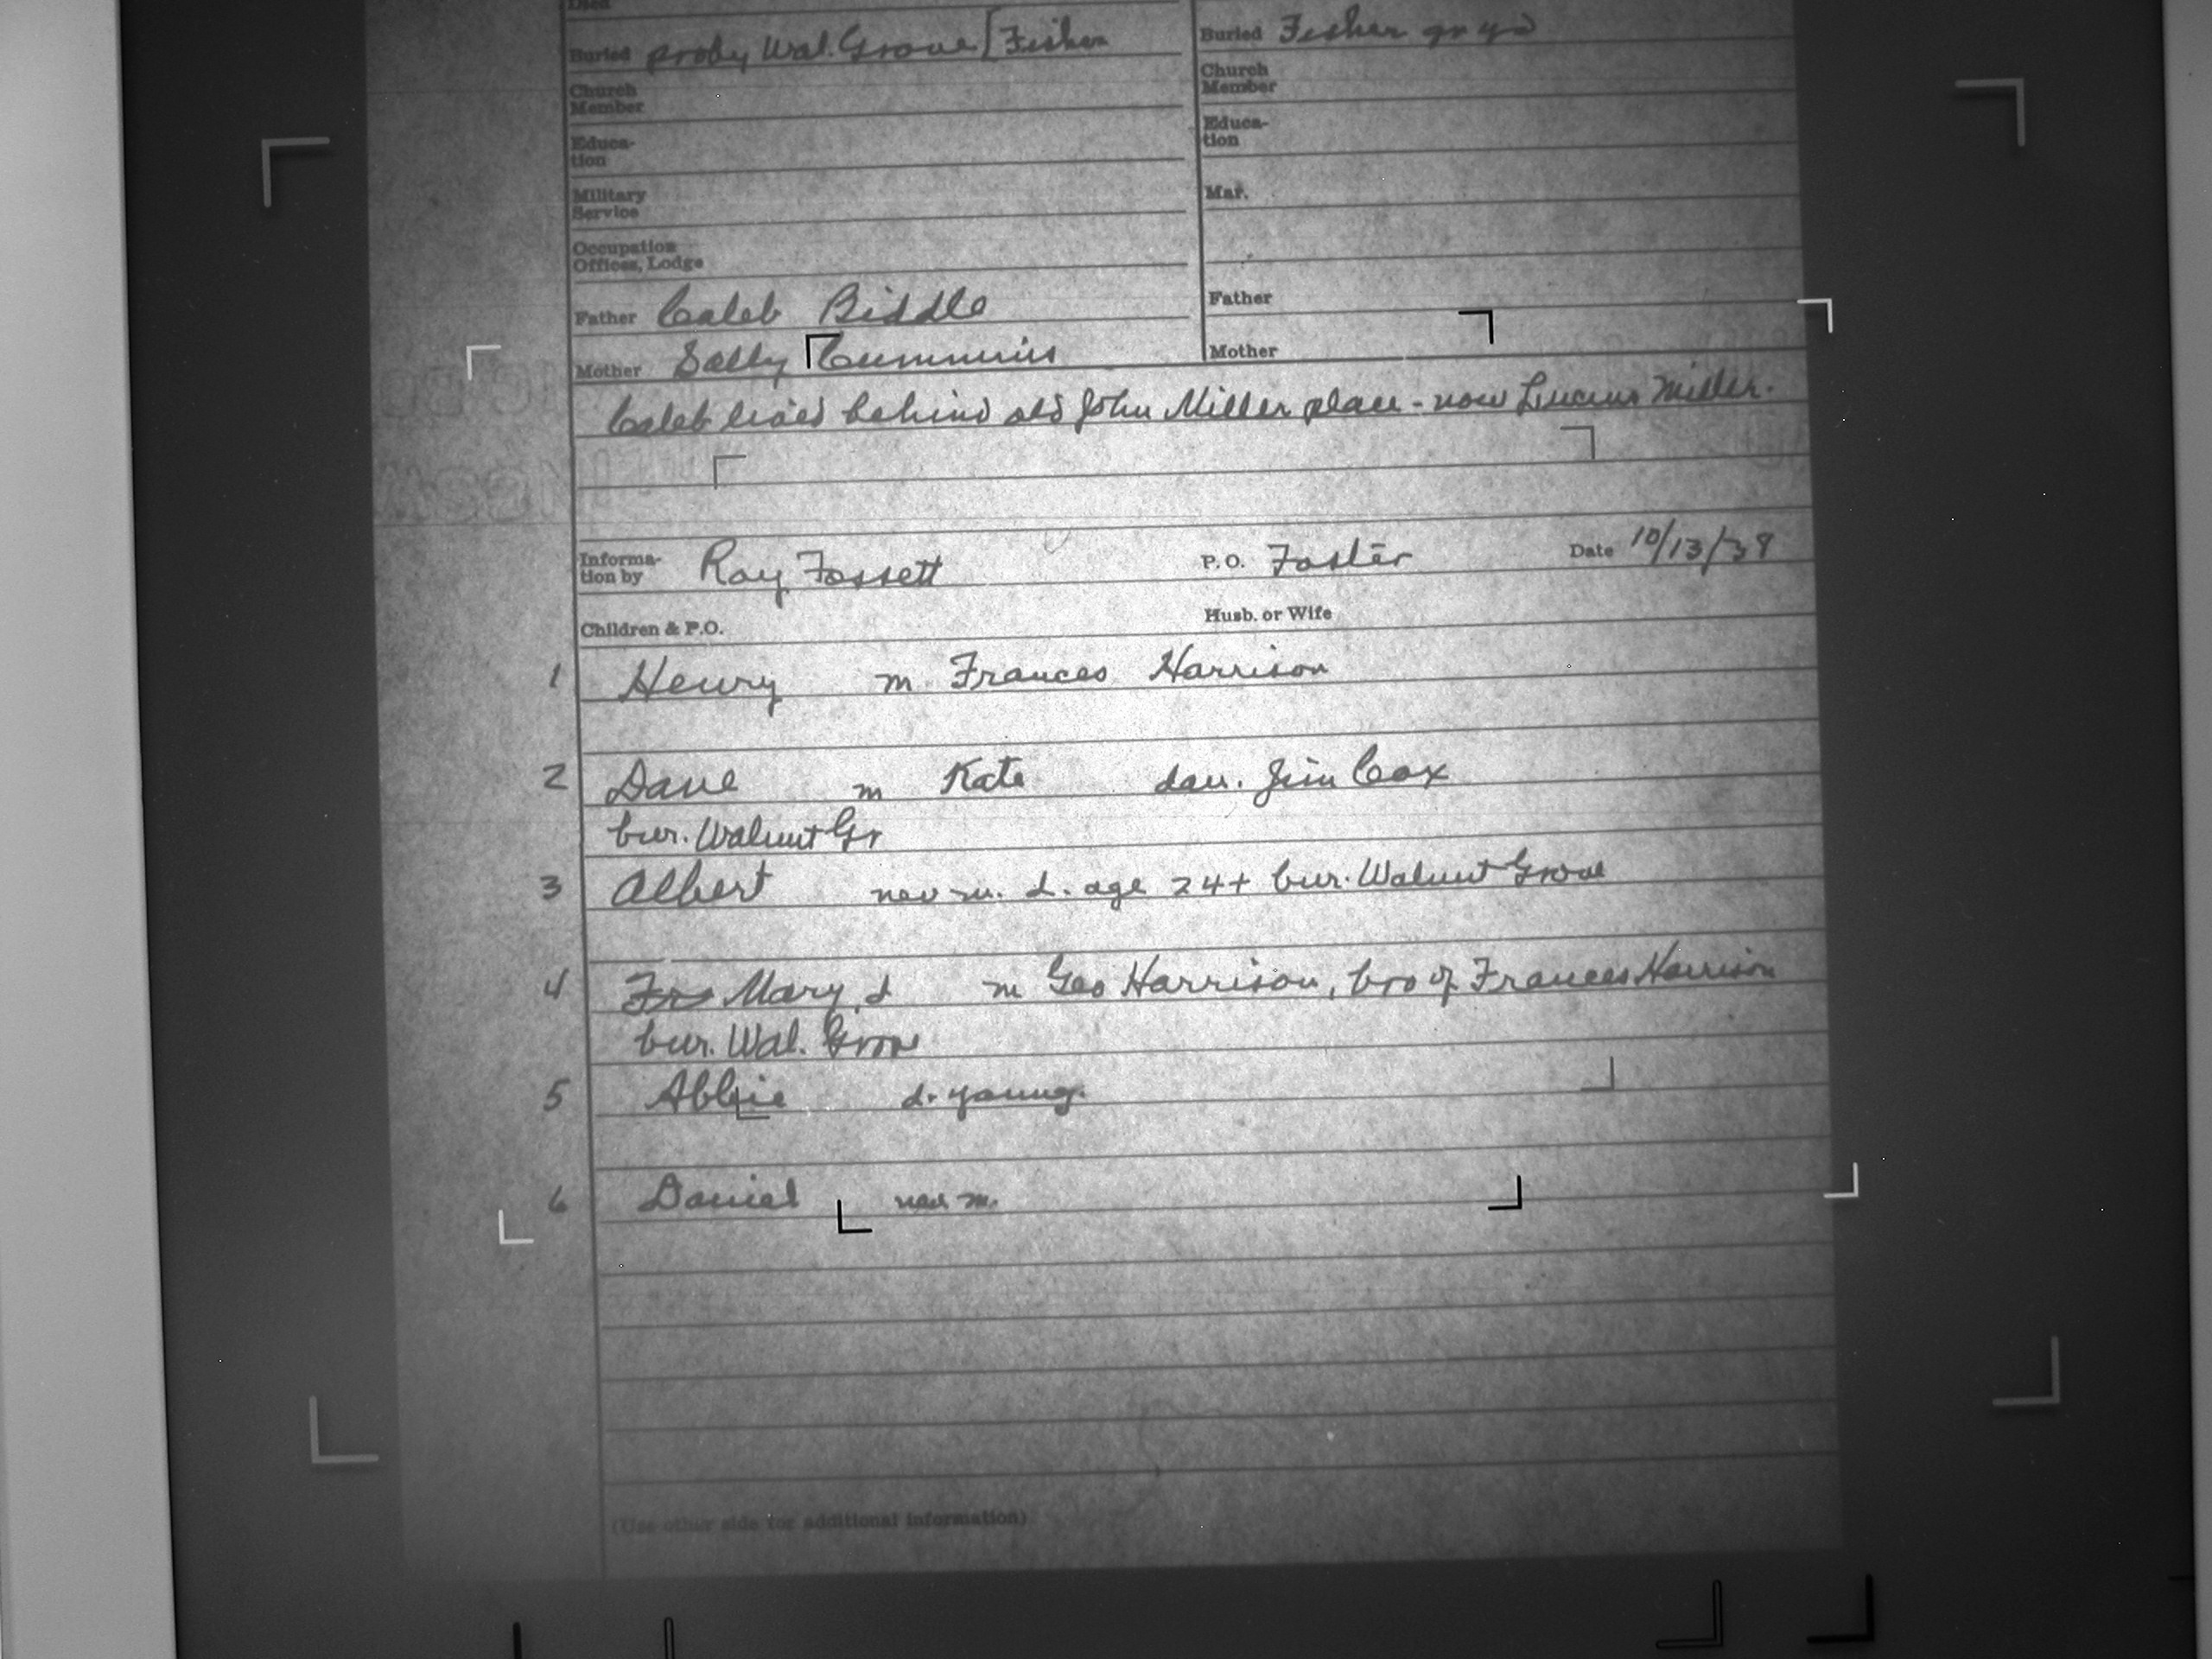 Died
Buried proby Wal. Grove [Fisher
Buried Fisher gr yd
Church Member
Church Member
Educa-tion
Educa-tion
Military Service
Mar.
Occupation Offices, Lodge
Father Caleb Biddle
Father
Mother Sally Cummins
Mother
Caleb lived behind old John Miller place - now Lucius Miller.
Informa-tion by Ray Fossett P.O. Foster Date 10/13/39
Children & P.O. Husb. or Wife
1 Henry m Frances Harrison
2 Dave m Kate dau. Jim Cox
bur. Walnut Gr
3 Albert nev m. d. age 24+ bur. Walnut Grove
4 Fra Mary d m Geo Harrison, bro of Frances Harrison
bur. Wal. Grove
5 Abbie d. young.
6 Daniel nev m.
(Use other side for additional information)